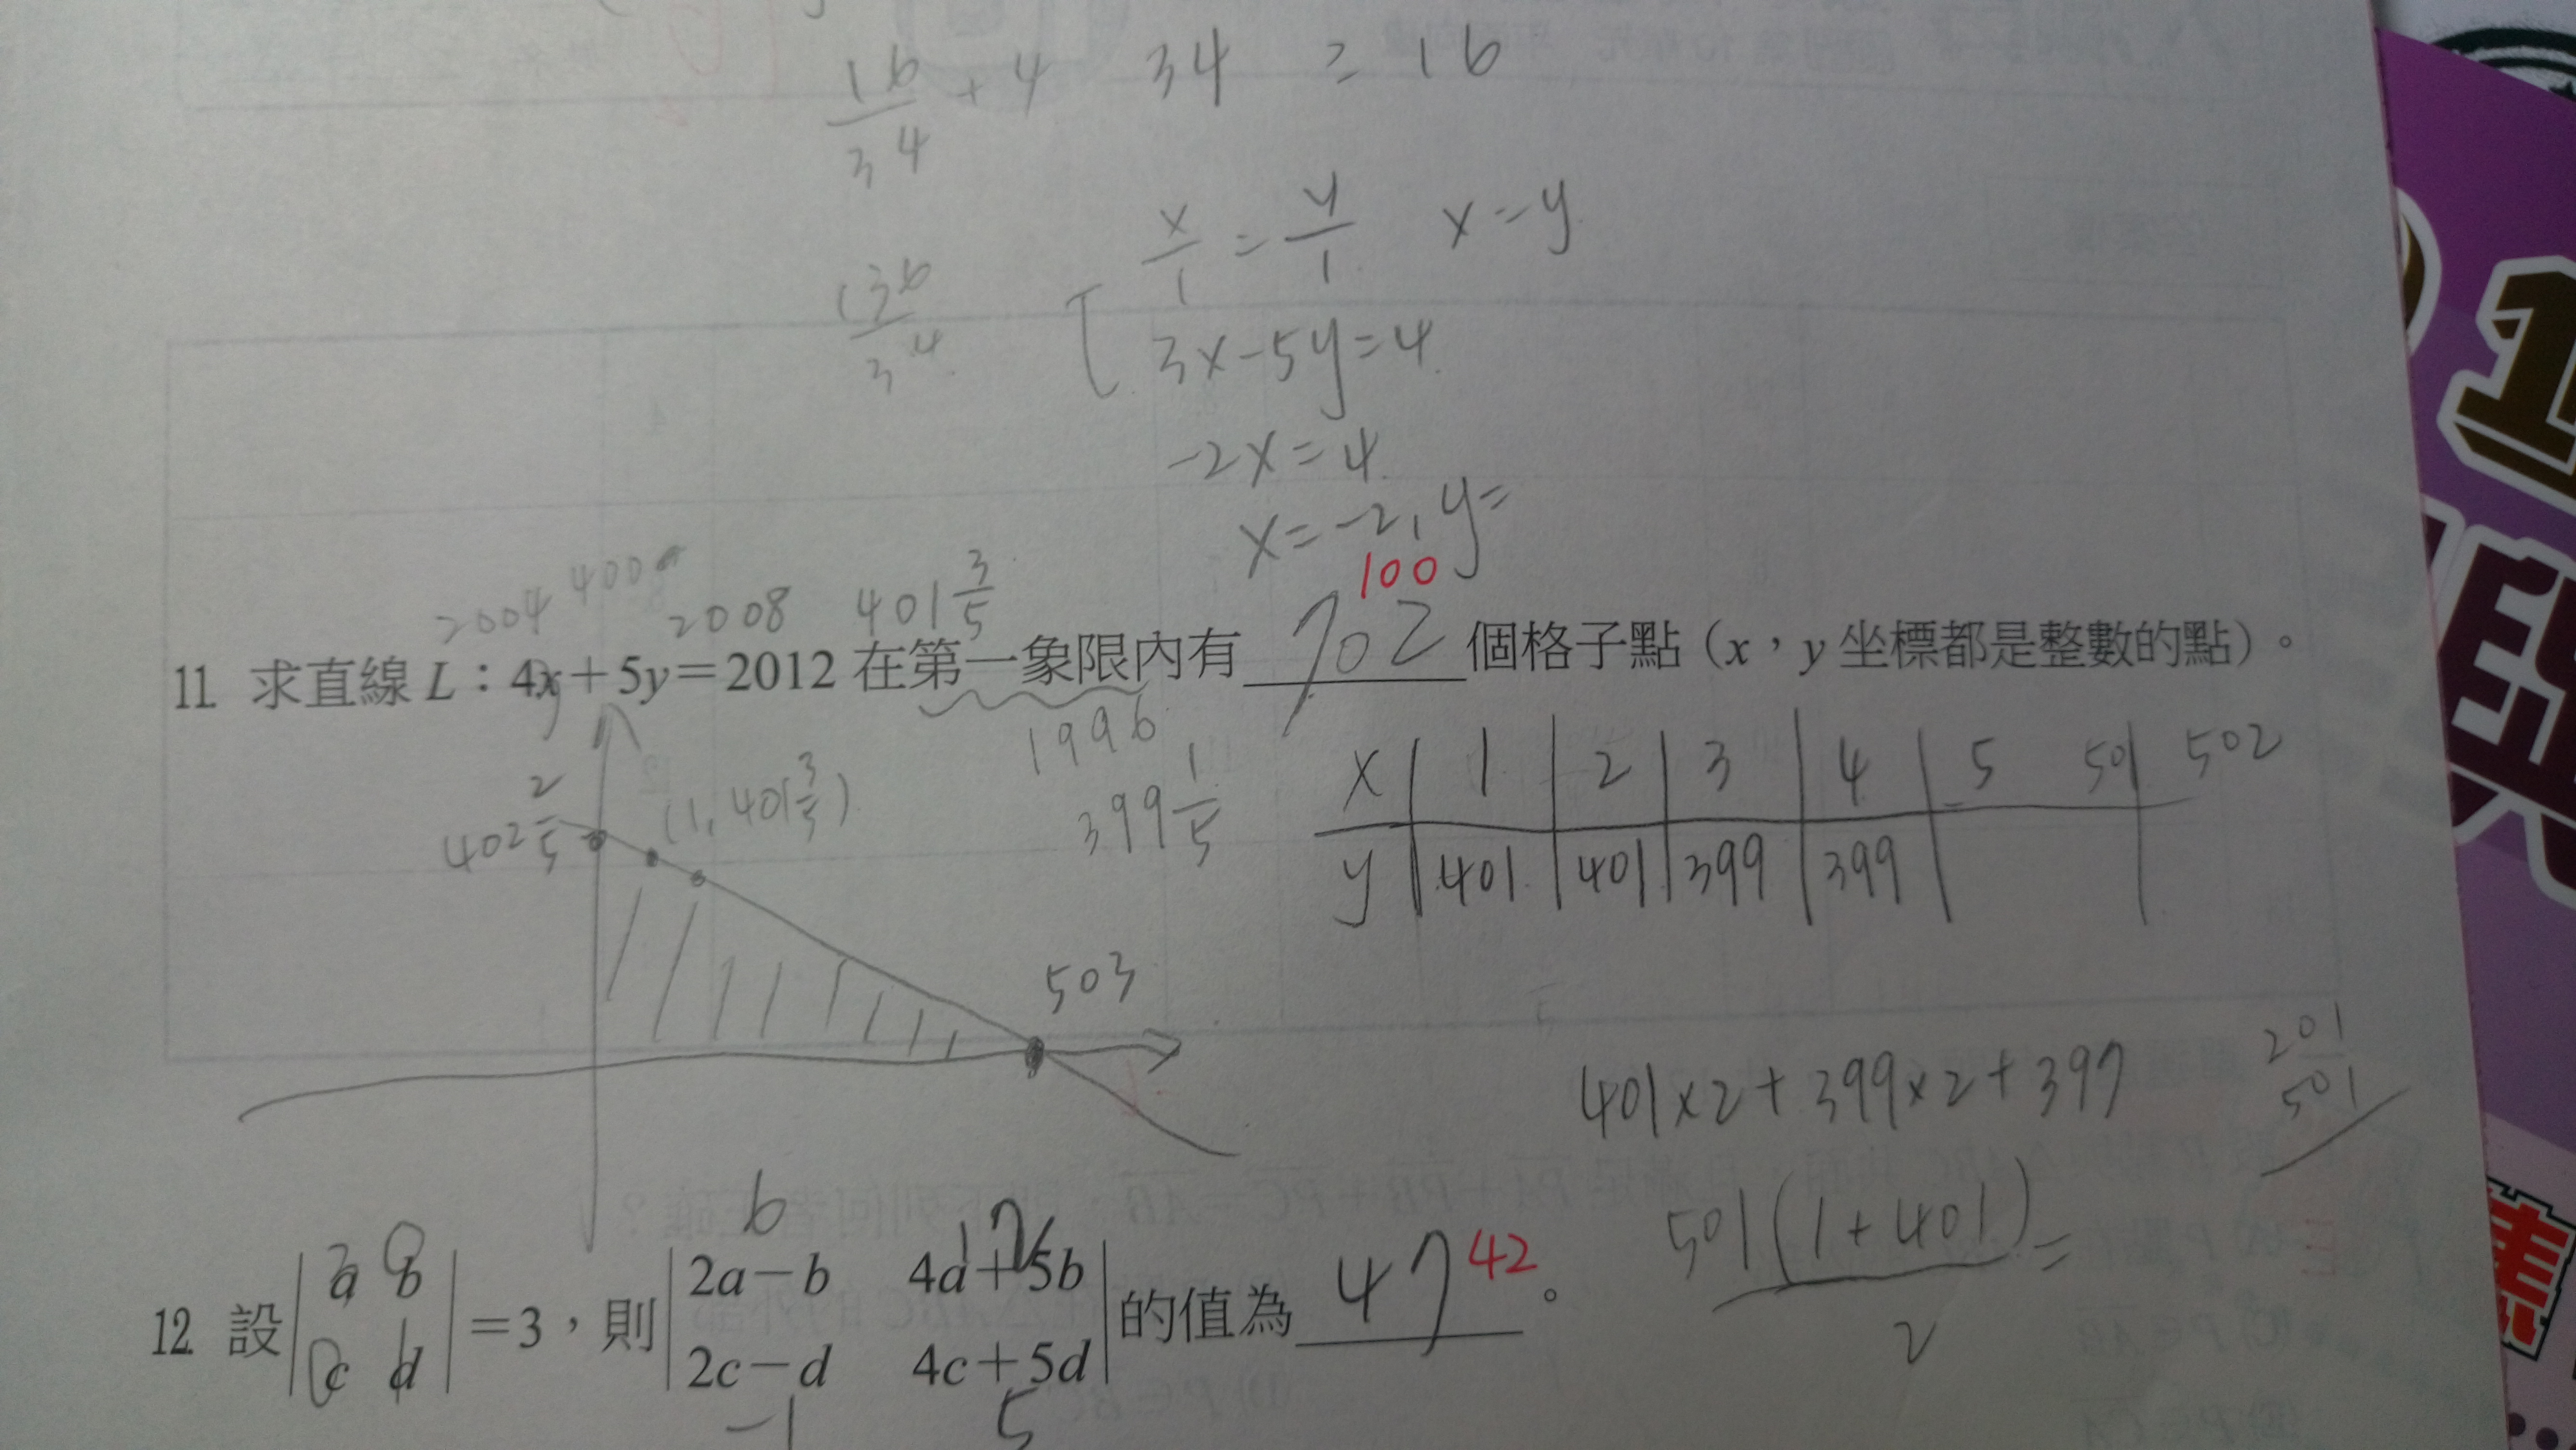 16/34 + 4 34 = 16
x/1 = y/1 x=y
136/34
3x-5y=4
-2x=4
x=-2, y=
100
2004 400 2008 401 3/5
11. 求直線 L：4x+5y=2012 在第一象限內有 702 個格子點（x，y 坐標都是整數的點）。
y
1996
399 1/5
x 1 2 3 4 5 501 502
y 401 401 399 399
402 2/5
(1, 401 3/5)
503
401×2+399×2+397
201
501
501(1+401)/2 =
3 0 6 17
12. 設|a b; c d|=3，則|2a-b 4a+5b; 2c-d 4c+5d|的值為 47 42。
0 1 -1 5
1